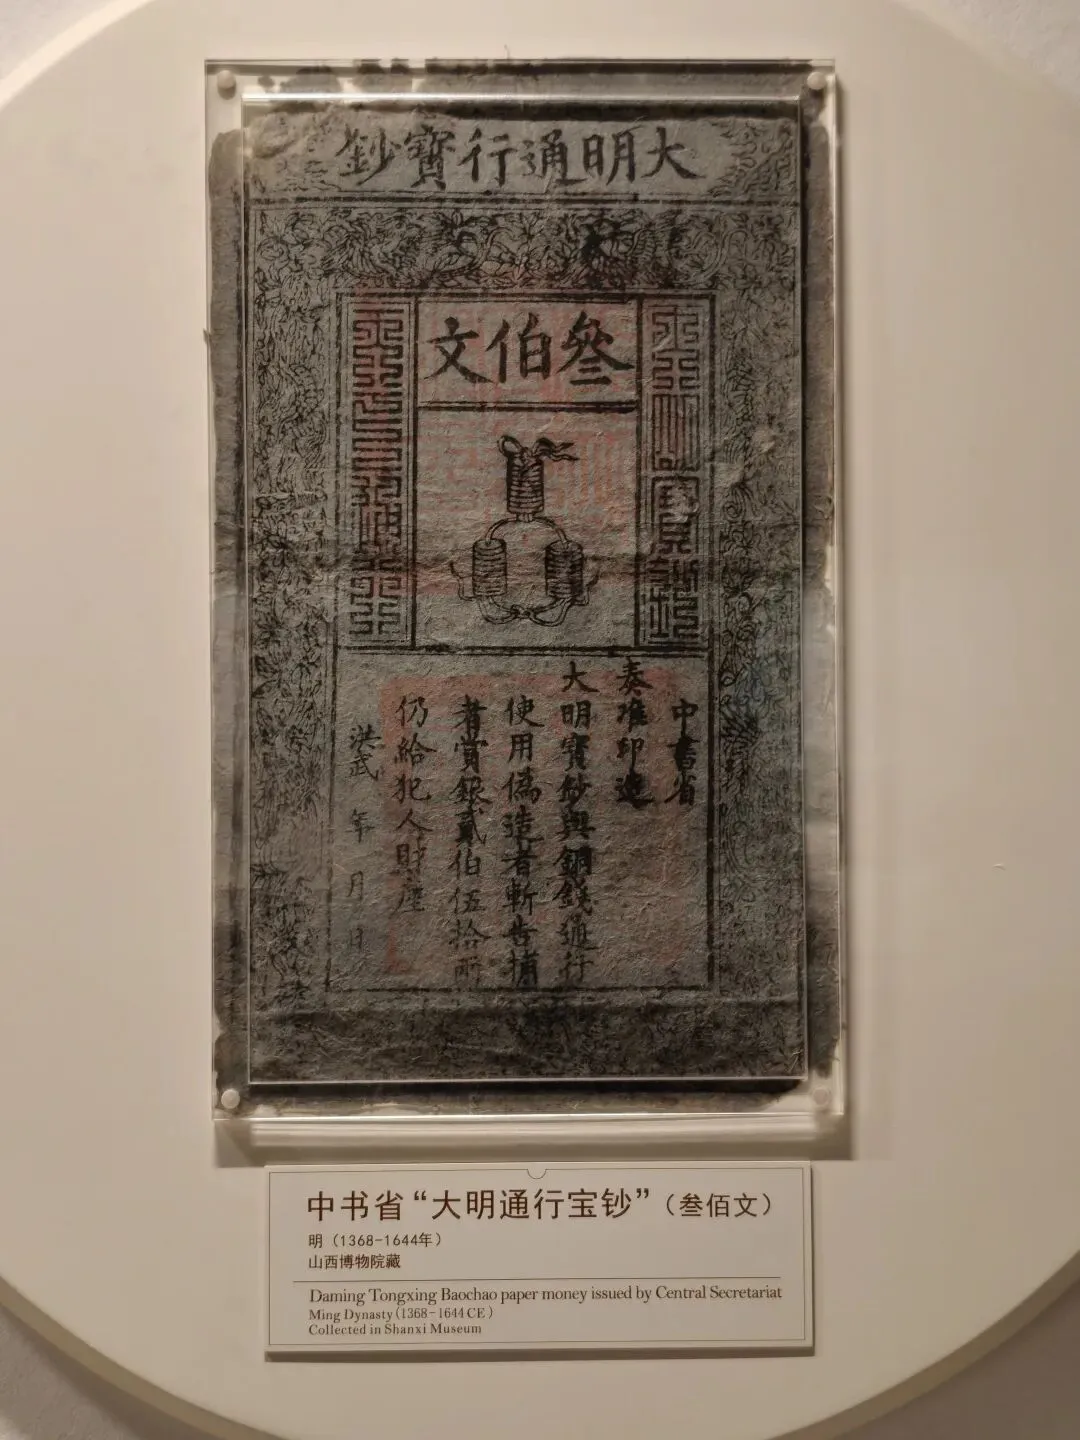 大明通行寶鈔
叄伯文
中書省
奏准印造
大明寶鈔與銅錢通行
使用僞造者斬告捕
者賞銀貳伯伍拾兩
仍給犯人財産
洪武 年 月 日
中书省“大明通行宝钞”（叁佰文）
明（1368-1644年）
山西博物院藏
Daming Tongxing Baochao paper money issued by Central Secretariat
Ming Dynasty (1368-1644 CE)
Collected in Shanxi Museum